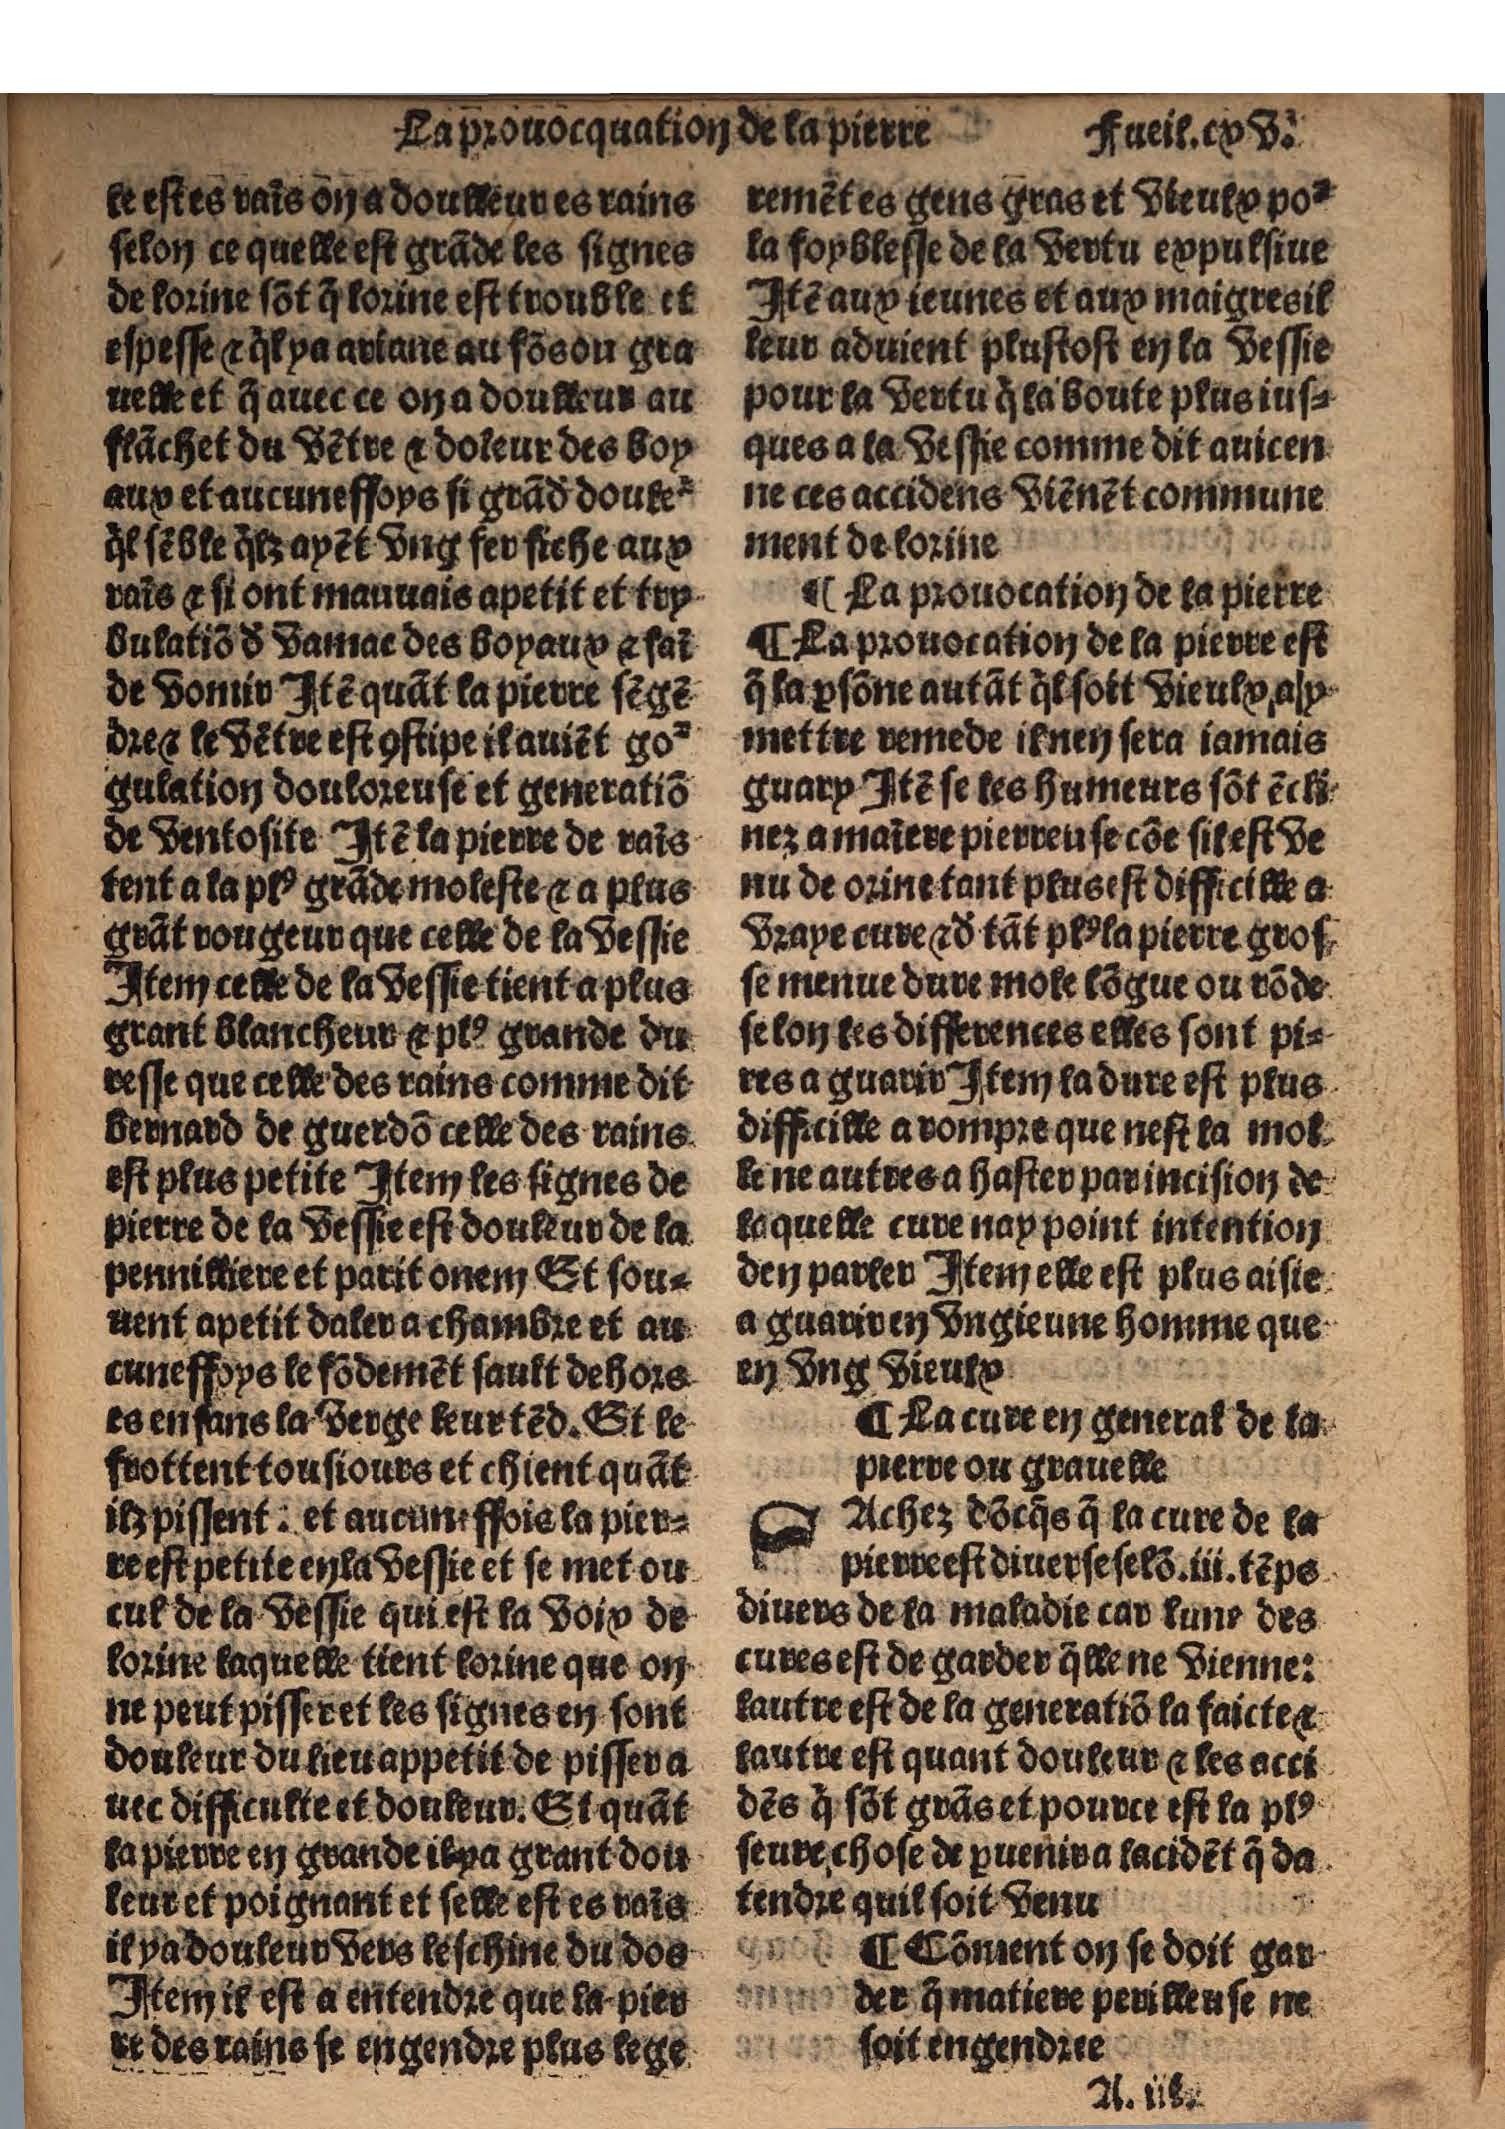 La prouocquation de la pierre Fueil.cxv.
le est es raīs on a doulleur es rains
selon ce quelle est grāde les signes
de lorine sōt q̄ lorine est trouble et
espesse ⁊ q̄l ya ariane au fōs ou gra
uelle et q̄ auec ce on a doulleur au
flāchet du vētre ⁊ doleur des boy
aux et aucuneffoys si grād̄ doule
q̄l sēble q̄lz ayēt vng fer fiche aux
raīs ⁊ si ont mauuais apetit et try
bulatiō d̄ vamac des boyaux ⁊ faī
de vomir Itē quāt la pierre sēgē
dre ⁊ le vētre est ꝯstipe il auiēt go
gulation douloreuse et generatiō
de ventosite Itē la pierre de raīs
tent a la plꝰ grāde moleste ⁊ a plus
grāt rougeur que celle de la vessie
Item celle de la vessie tient a plus
grant blancheur ⁊ plꝰ grande du
resse que celle des rains comme dit
bernard de guerdō celle des rains
est plus petite Item les signes de
pierre de la vessie est douleur de la
pennilliere et parit onem Et sou-
uent apetit daler a chambre et au
cuneffoys le fōdemēt sault dehors
es enfans la verge leur tēd. Et le
frottent tousiours et chient quāt
ilz pissent : et aucuneffois la pier-
re est petite en la vessie et se met ou
cul de la vessie qui est la voix de
lorine laquelle tient lorine que on
ne peut pisser et les signes en sont
douleur du lieu appetit de pisser a
uec difficulte et douleur. Et quāt
la pierre en grande il ya grant dou
leur et poignant et selle est es raīs
il ya douleur vers leschine du dos
Item il est a entendre que la pier
re des rains se engendre plus lege
remēt es gens gras et vieulx po
la foyblesse de la vertu expulsiue
Itē aux ieunes et aux maigres il
leur aduient plustost en la vessie
pour la vertu q̄ la boute plus ius-
ques a la vessie comme dit auicen
ne ces accidens viēnēt commune
ment de lorine
¶ La prouocation de la pierre
¶ La prouocation de la pierre est
q̄ la ꝑsōne autāt q̄l soit vieulx, a y
mettre remede il nen sera iamais
guary Itē se les humeurs sōt ēcli
nez a maīere pierreuse cōe sil est ve
nu de orine tant plus est difficille a
vraye cure ⁊ d̄ tāt plꝰ la pierre gros
se menue dure mole lōgue ou rōde
selon les differences elles sont pi-
res a guarir Item la dure est plus
difficille a rompre que nest la mol
le ne autres a haster par incision de
laquelle cure nay point intention
den parler Item elle est plus aisie
a guarir en vng ieune homme que
en vng vieulx
¶ La cure en general de la
pierre ou grauelle
Achez dōcq̄s q̄ la cure de la
pierre est diuerse selō .iii. tēps
diuers de la maladie car lune des
cures est de garder q̄lle ne vienne:
lautre est de la generatiō la faicte ⁊
lautre est quant douleur ⁊ les acci
dēs q̄ sōt grās et pource est la plꝰ
seure chose de ꝑuenir a lacidēt q̄ da
tendre quil soit venu
¶ Cōment on se doit gar
der q̄ matiere perilleuse ne
soit engendree